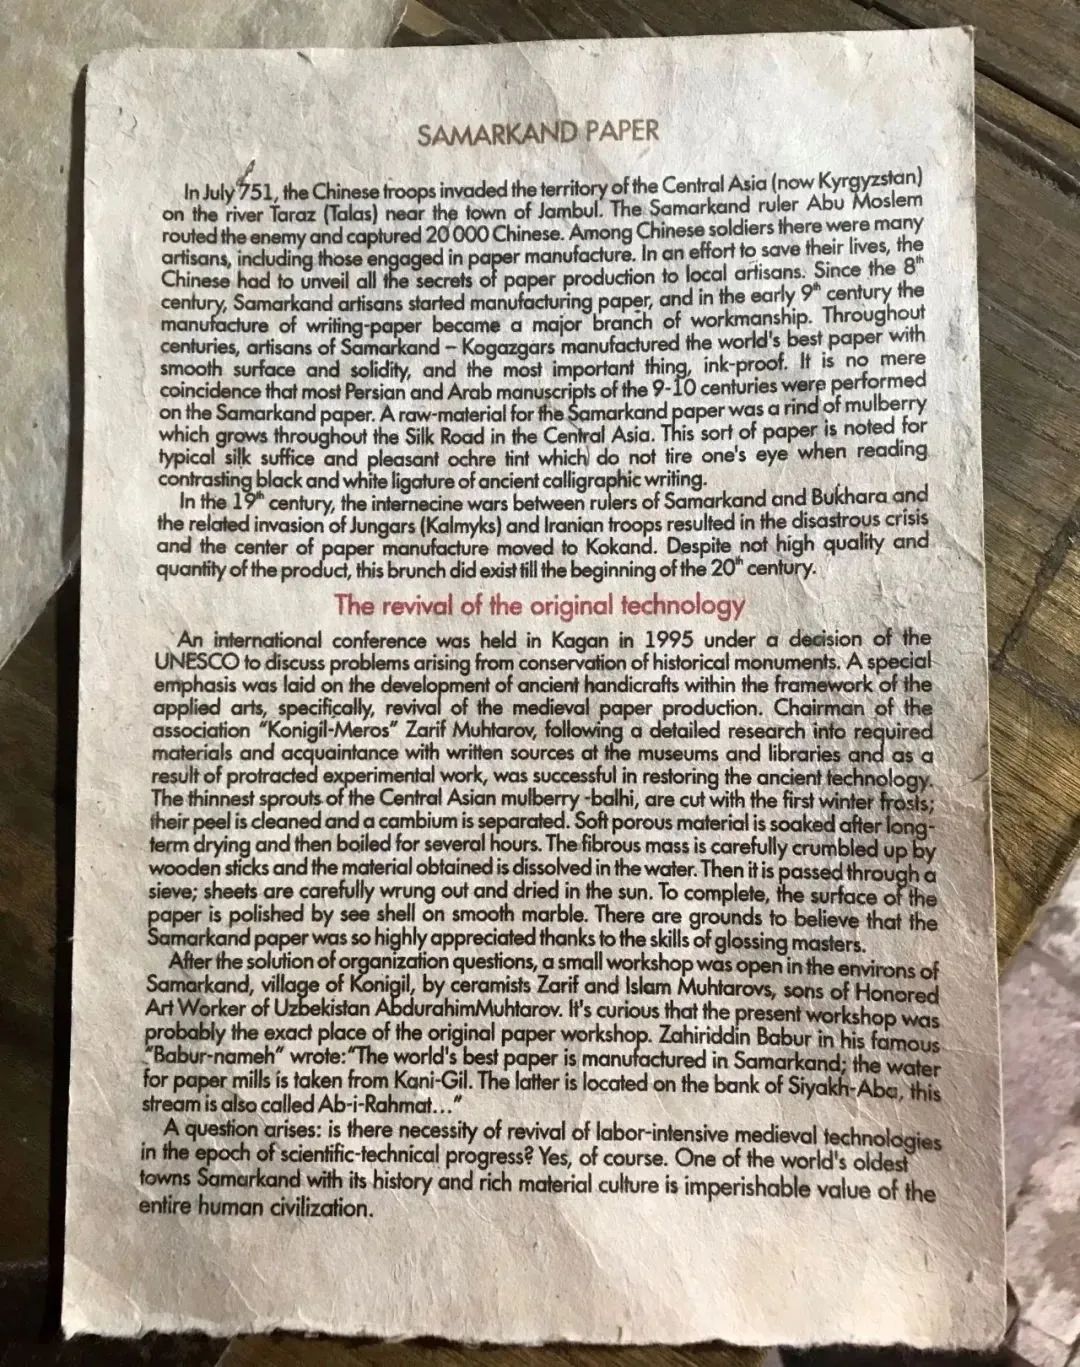 SAMARKAND PAPER
In July 751, the Chinese troops invaded the territory of the Central Asia (now Kyrgyzstan)
on the river Taraz (Talas) near the town of Jambul. The Samarkand ruler Abu Moslem
routed the enemy and captured 20 000 Chinese. Among Chinese soldiers there were many
artisans, including those engaged in paper manufacture. In an effort to save their lives, the
Chinese had to unveil all the secrets of paper production to local artisans. Since the 8th
century, Samarkand artisans started manufacturing paper, and in the early 9th century the
manufacture of writing-paper became a major branch of workmanship. Throughout
centuries, artisans of Samarkand – Kogazgars manufactured the world's best paper with
smooth surface and solidity, and the most important thing, ink-proof. It is no mere
coincidence that most Persian and Arab manuscripts of the 9-10 centuries were performed
on the Samarkand paper. A raw-material for the Samarkand paper was a rind of mulberry
which grows throughout the Silk Road in the Central Asia. This sort of paper is noted for
typical silk suffice and pleasant ochre tint which do not tire one's eye when reading
contrasting black and white ligature of ancient calligraphic writing.
In the 19th century, the internecine wars between rulers of Samarkand and Bukhara and
the related invasion of Jungars (Kalmyks) and Iranian troops resulted in the disastrous crisis
and the center of paper manufacture moved to Kokand. Despite not high quality and
quantity of the product, this brunch did exist till the beginning of the 20th century.
The revival of the original technology
An international conference was held in Kagan in 1995 under a decision of the
UNESCO to discuss problems arising from conservation of historical monuments. A special
emphasis was laid on the development of ancient handicrafts within the framework of the
applied arts, specifically, revival of the medieval paper production. Chairman of the
association "Konigil-Meros" Zarif Muhtarov, following a detailed research into required
materials and acquaintance with written sources at the museums and libraries and as a
result of protracted experimental work, was successful in restoring the ancient technology.
The thinnest sprouts of the Central Asian mulberry -balhi, are cut with the first winter frosts;
their peel is cleaned and a cambium is separated. Soft porous material is soaked after long-
term drying and then boiled for several hours. The fibrous mass is carefully crumbled up by
wooden sticks and the material obtained is dissolved in the water. Then it is passed through a
sieve; sheets are carefully wrung out and dried in the sun. To complete, the surface of the
paper is polished by see shell on smooth marble. There are grounds to believe that the
Samarkand paper was so highly appreciated thanks to the skills of glossing masters.
After the solution of organization questions, a small workshop was open in the environs of
Samarkand, village of Konigil, by ceramists Zarif and Islam Muhtarovs, sons of Honored
Art Worker of Uzbekistan AbdurahimMuhtarov. It's curious that the present workshop was
probably the exact place of the original paper workshop. Zahiriddin Babur in his famous
"Babur-nameh" wrote:"The world's best paper is manufactured in Samarkand; the water
for paper mills is taken from Kani-Gil. The latter is located on the bank of Siyakh-Aba, this
stream is also called Ab-i-Rahmat..."
A question arises: is there necessity of revival of labor-intensive medieval technologies
in the epoch of scientific-technical progress? Yes, of course. One of the world's oldest
towns Samarkand with its history and rich material culture is imperishable value of the
entire human civilization.